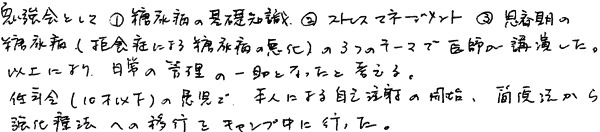 勉強会として ① 糖尿病の基礎知識、② ストレスマネージメント ③ 思春期の
糖尿病（拒食症による糖尿病の悪化）の3つのテーマで医師が講演した。
以上により、日常の管理の一助となったと考える。
低年令（10才以下）の患児で、本人による自己注射の開始、簡便法から
強化療法への移行をキャンプ中に行った。